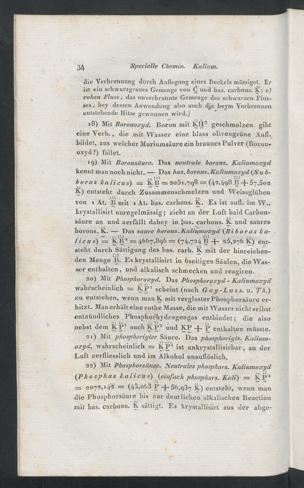 34 Specielle Chemie. Kalium.
die Verbrennung durch Auflegung eines Deckels mässiget. Er
ist ein schwarzgraues Gemenge von C und bas. carbons. K; c)
rohen Fluss, das unverbrannte Gemenge des schwarzen Flus-
ses, bey dessen Anwendung also auch die beym Verbrennen
entstehende Hitze gewonnen wird.)
18) Mit Boronoxyd. Boron mit geschmolzen gibt
eine Verb., die mit Wasser eine blass olivengrüne Aufl.
bildet, aus welcher Muriumsäure ein braunes Pulver (Boron-
oxyd?) fället.
19) Mit Boronsäure. Das neutrale borons. Kaliumoxyd
kennt man noch nicht. — Das bas. borons. Kaliumoxyd (Sub-
boras kalicus) = K B = 2051,798 = (42,498 B + 57,502
K) entsteht durch Zusammenschmelzen und Weissglühen
von 1 At. B mit 1 At. bas. carbons. K. Es ist aufl. im W.,
krystallisirt unregelmässig; zieht an der Luft bald Carbon-
säure an und zerfällt dabey in bas. carbons. K und saures
borons. K. — Das saure borons. Kaliumoxyd (Biboras ka-
licus) = = 4667,896 = (74,724 B + 25,276 K) ent-
steht durch Sättigung des bas. carb. K mit der hinreichen-
den Menge B. Es krystallisirt in 6seitigen Säulen, die Was-
ser enthalten, und alkalisch schmecken und reagiren.
20) Mit Phosphoroxyd. Das Phosphoroxyd-Kaliumoxyd
wahrscheinlich = scheint (nach Gay-Luss. u. Th.)
zu entstehen, wenn man K mit verglaster Phosphorsäure er-
hitzt. Man erhält eine rothe Masse, die mit Wasser nicht selbst
entzündliches Phosphorhydrogengas entbindet; die also
nebst dem auch und KP + P enthalten müsste.
21) Mit phosphorigter Säure. Das phosphorigts. Kalium-
oxyd, wahrscheinlich = ist unkrystallisirbar, an der
Luft zerfliesslich und im Alkohol unauflöslich.
22) Mit Phosphorsäure. Neutrales phosphors. Kaliumoxyd
(Phosphas kalicus) (einfach phosphors. Kali) =
= 2072,148 = (43,063 P + 56,937 K) entsteht, wenn man
die Phosphorsäure bis zur deutlichen alkalischen Reaction
mit bas. carbons. K sättigt. Es krystallisirt aus der abge-